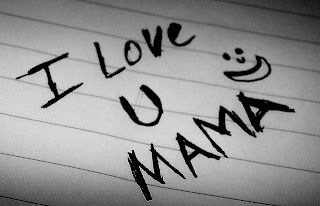 I LOVE
U
MAMA